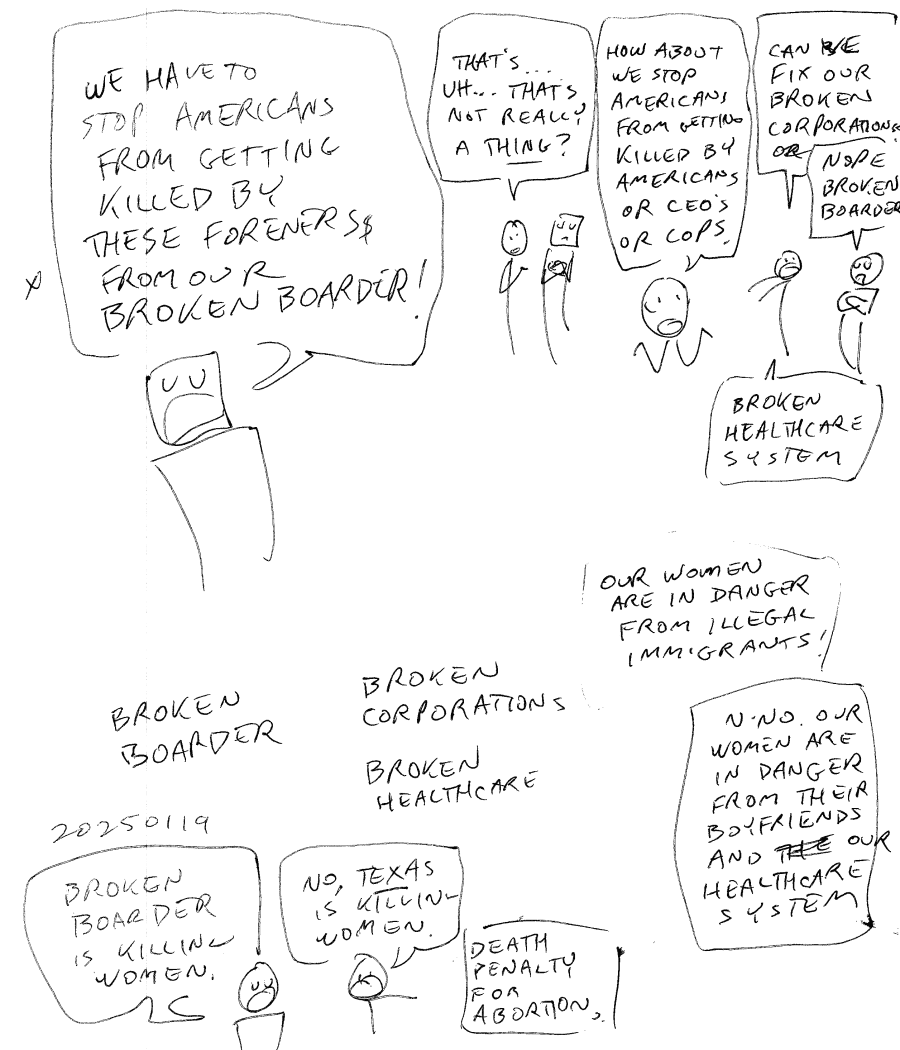 WE HAVE TO
STOP AMERICANS
FROM GETTING
KILLED BY
THESE FORENERS$
FROM OUR
BROKEN BOARDER!
X
THAT'S...
UH... THAT'S
NOT REALLY
A THING?
HOW ABOUT
WE STOP
AMERICANS
FROM GETTING
KILLED BY
AMERICANS
OR CEO'S
OR COPS.
CAN WE
FIX OUR
BROKEN
CORPORATIONS
OR
NOPE
BROKEN
BOARDER
BROKEN
HEALTHCARE
SYSTEM
OUR WOMEN
ARE IN DANGER
FROM ILLEGAL
IMMIGRANTS!
BROKEN
BOARDER
BROKEN
CORPORATIONS
BROKEN
HEALTHCARE
N-NO. OUR
WOMEN ARE
IN DANGER
FROM THEIR
BOYFRIENDS
AND THE OUR
HEALTHCARE
SYSTEM
20250119
BROKEN
BOARDER
IS KILLING
WOMEN.
NO, TEXAS
IS KILLING
WOMEN.
DEATH
PENALTY
FOR
ABORTION.